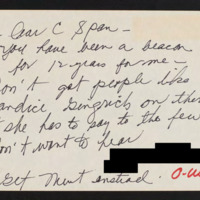 Dear C Span -
you have been a beacon
for 12 years for me -
on't get people like
andice Gingrich on ther
t she has to say to the few
on't want to hear
Get instead.